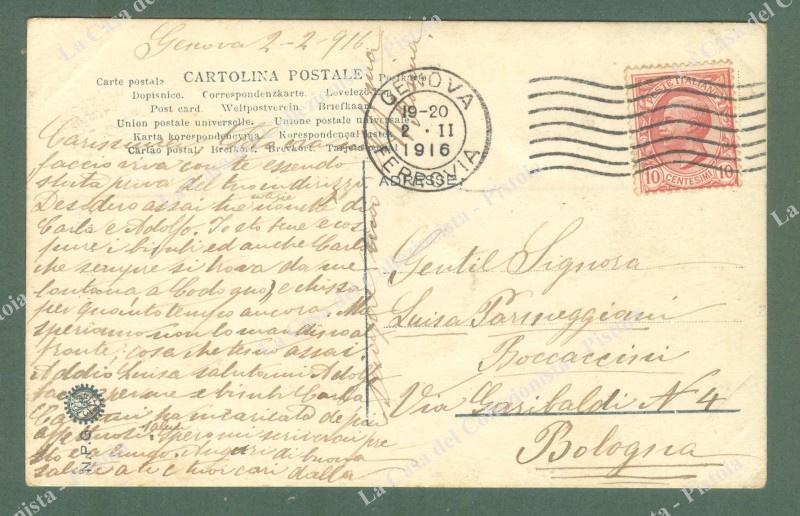 Genova 2-2-916
Carte postale CARTOLINA POSTALE Postkarte
Dopisnice. Correspondenzkarte. Levelező-Lap
Post card. Weltpostverein. Briefkaart
Union postale universelle. Unione postale universale
Karta korespondencyjna. Korespondenční lístek
Cartão postal. Brefkort. Brevkort. Tarjeta postal
GENOVA
19-20
2 · II
1916
FERROVIA
POSTE ITALIANE
10 CENTESIMI 10
ADRESSE
Carissima
faccio viva con te essendo
stata priva del tuo indirizzo
Desidero assai tue notizie di
Carla e Adolfo. Io sto bene e cos
pure i bimbi ed anche Carlo
che sempre si trova da me
lontano a Codogno, e chissà
per quanto tempo ancora. Ma
speriamo non lo mandino a
fronte, cosa che temo assai
Addio Luisa salutami Adolfo
e bimbi Carla
ha incaricato de
affettuosi saluti. Spero mi scriverai pre
sto e a lungo. Auguri di buona
salute a te e tuoi cari dalla
N.P.G.
Gentil Signora
Luisa Parmeggiani
Boccaccini
Via Garibaldi N 4
Bologna
La Casa del Collezionista - Pistoia